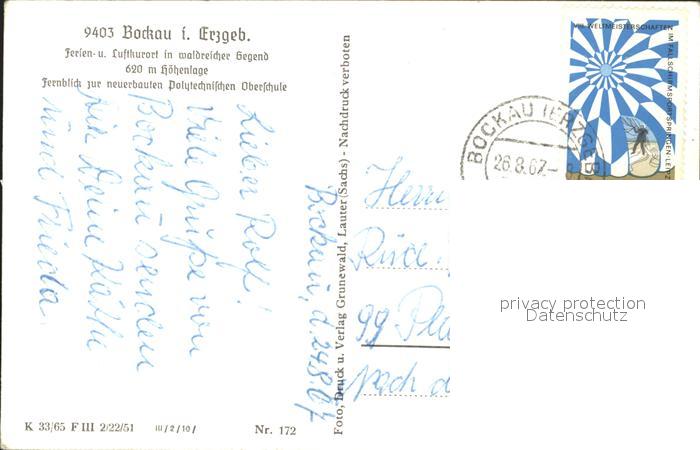 9403 Bockau i. Erzgeb.
Ferien- u. Luftkurort in waldreicher Gegend
620 m Höhenlage
Fernblick zur neuerbauten Polytechnischen Oberschule
Bockau, d. 24.8.67
Lieber Rolf!
Viele Grüße von
Bockau senden
Dir Deine Käthe
und Frieda.
K 33/65 F III 2/22/51 III/2/10/ Nr. 172
Foto, Druck u. Verlag Grunewald, Lauter (Sachs) - Nachdruck verboten
VIII. WELTMEISTERSCHAFTEN IM FALLSCHIRMSPORTSPRINGEN LEIPZ
BOCKAU (ERZGEB
26.8.67-
Herrn
99 Pla
nach d
privacy protection
Datenschutz